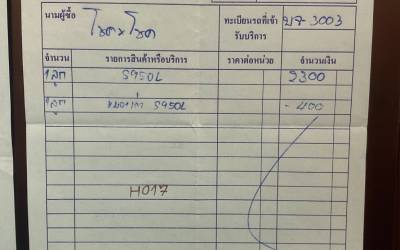 นามผู้ซื้อ โชคxโชค ทะเบียนรถที่เข้ารับบริการ 3003
จำนวน รายการสินค้าหรือบริการ ราคาต่อหน่วย จำนวนเงิน
1 ลูก S95DL 2300
1 ลูก S95DL - 400
H017